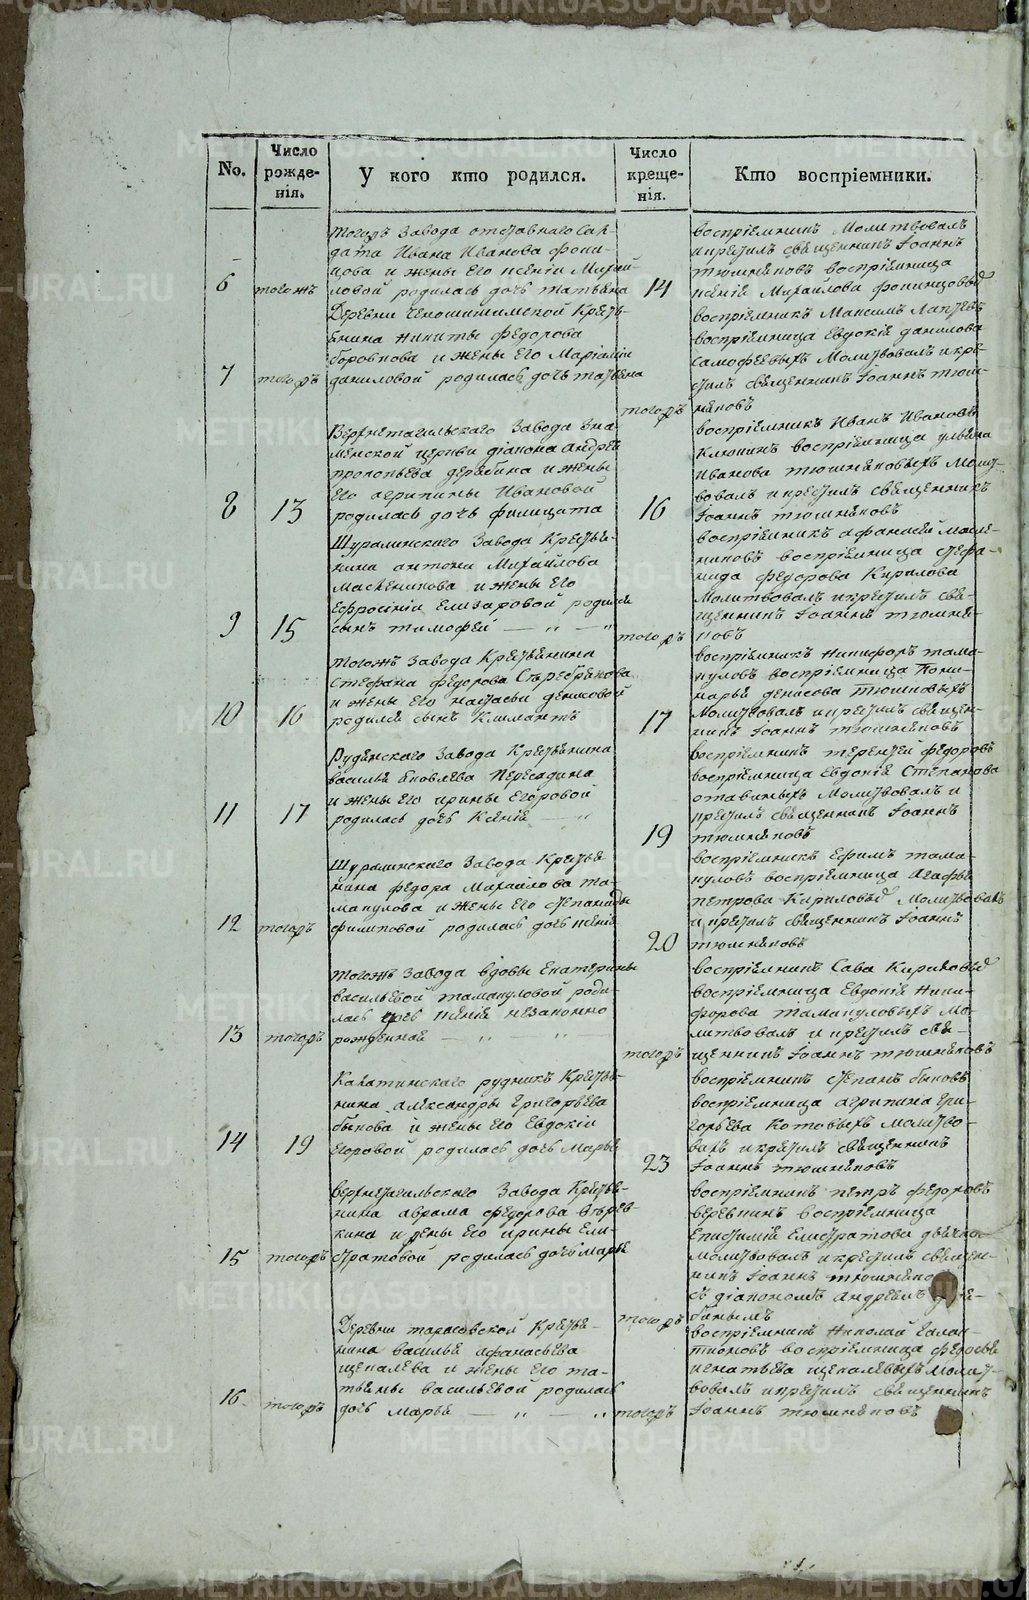 No.
Число рожде-
нія.
У кого кто родился.
Число креще-
нія.
Кто воспріемники.
6
тогожъ
тогожъ Завода отставнаго Сал-
дата Ивана Иванова
и жены Его Ксеніи Михай-
ловой родилась дочь татьяна
14
воспріемникъ Молитвовалъ
и крестилъ священникъ Іоаннъ
тюшняковъ воспріемница
Ксенія Михаилова
7
тогожъ
Деревни Крестья-
нина Никиты Федорова
боровкова и жены Его Маріамны
даниловой родилась дочь татьяна
тогожъ
воспріемникъ Максимъ
воспріемница Евдокія данилова
Молитвовалъ и кре-
стилъ священникъ Іоаннъ тюш-
няковъ
8
13
Верхнетагильскаго Завода Зна-
менской церкви діакона Андрея
прокопьева дерябина и жены
Его агрипины Ивановой
родилась дочь филицата
16
воспріемникъ Иванъ Ивановъ
Клюкинъ воспріемница ульяна
Иванова тюшняковыхъ Молит-
вовалъ и крестилъ священникъ
Іоаннъ тюшняковъ
9
15
Шуралинскаго Завода Крестья-
нина антона Михайлова
Масленикова и жены Его
Ефросініи Елизаровой родился
сынъ тимофей — „ — „
тогожъ
воспріемникъ афанасей масле-
никовъ воспріемница стефа-
нида Федорова Кирилова
Молитвовалъ и крестилъ свя-
щенникъ Іоаннъ тюшня-
ковъ
10
16
тогожъ Завода Крестьянина
Стефана Федорова Серебрякова
и жены Его настасьи денисовой
родился сынъ Климантъ
17
воспріемникъ Никифоръ тама-
куловъ воспріемница
денисова
Молитвовалъ и крестилъ священ-
никъ Іоаннъ тюшняковъ
11
17
Рудянскаго Завода Крестьянина
василья Яковлева Пересадина
и жены Его ирины Егоровой
родилась дочь Ксенія — „
19
воспріемникъ терентей Федоровъ
воспріемница Евдокія Степанова
Молитвовалъ и
крестилъ священникъ Іоаннъ
тюшняковъ
12
тогожъ
Шуралинскаго Завода Крестья-
нина федора Михайлова та-
макулова и жены Его степаниды
филиповой родилась дочь Ксенія
20
воспріемникъ Ефимъ тама-
куловъ воспріемница Агафья
петрова Кириловыхъ Молитвовалъ
и крестилъ священникъ Іоаннъ
тюшняковъ
13
тогожъ
тогожъ Завода вдовы Екатерины
васильевой тамакуловой роди-
лась дочь Ксенія незаконно
рожденная — „ „
тогожъ
воспріемникъ Сава Кириловъ
воспріемница Евдокія Ники-
форова тамакуловыхъ Мо-
литвовалъ и крестилъ свя-
щенникъ Іоаннъ тюшняковъ
14
19
Калатинскаго рудника Крестья-
нина александры Григорьева
быкова и жены Его Евдокіи
Егоровой родилась дочь Марья
23
воспріемникъ степанъ быковъ
воспріемница агрипина гри-
горьева Котовыхъ молитво-
валъ и крестилъ священникъ
Іоаннъ тюшняковъ
15
тогожъ
верхнетагильскаго Завода Крестья-
нина аврама федорова верев-
кина и жены Его ирины Ели-
стратовой родилась дочь марья
тогожъ
воспріемникъ петръ федоровъ
веревкинъ воспріемница
Епистимія Елистратова
молитвовалъ и крестилъ священ-
никъ Іоаннъ тюшняковъ
съ діакономъ андреемъ деря-
бинымъ
16
тогожъ
Деревни тарасовской Крестья-
нина василья афанасьева
щекалева и жены Его та-
тьяны васильевой родилась
дочь Марья — „ — „
тогожъ
воспріемникъ Николай Галак-
тіоновъ воспріемница федосья
игнатьева щекалевыхъ молит-
вовалъ и крестилъ священникъ
Іоаннъ тюшняковъ
METRIKI.GASO-URAL.RU